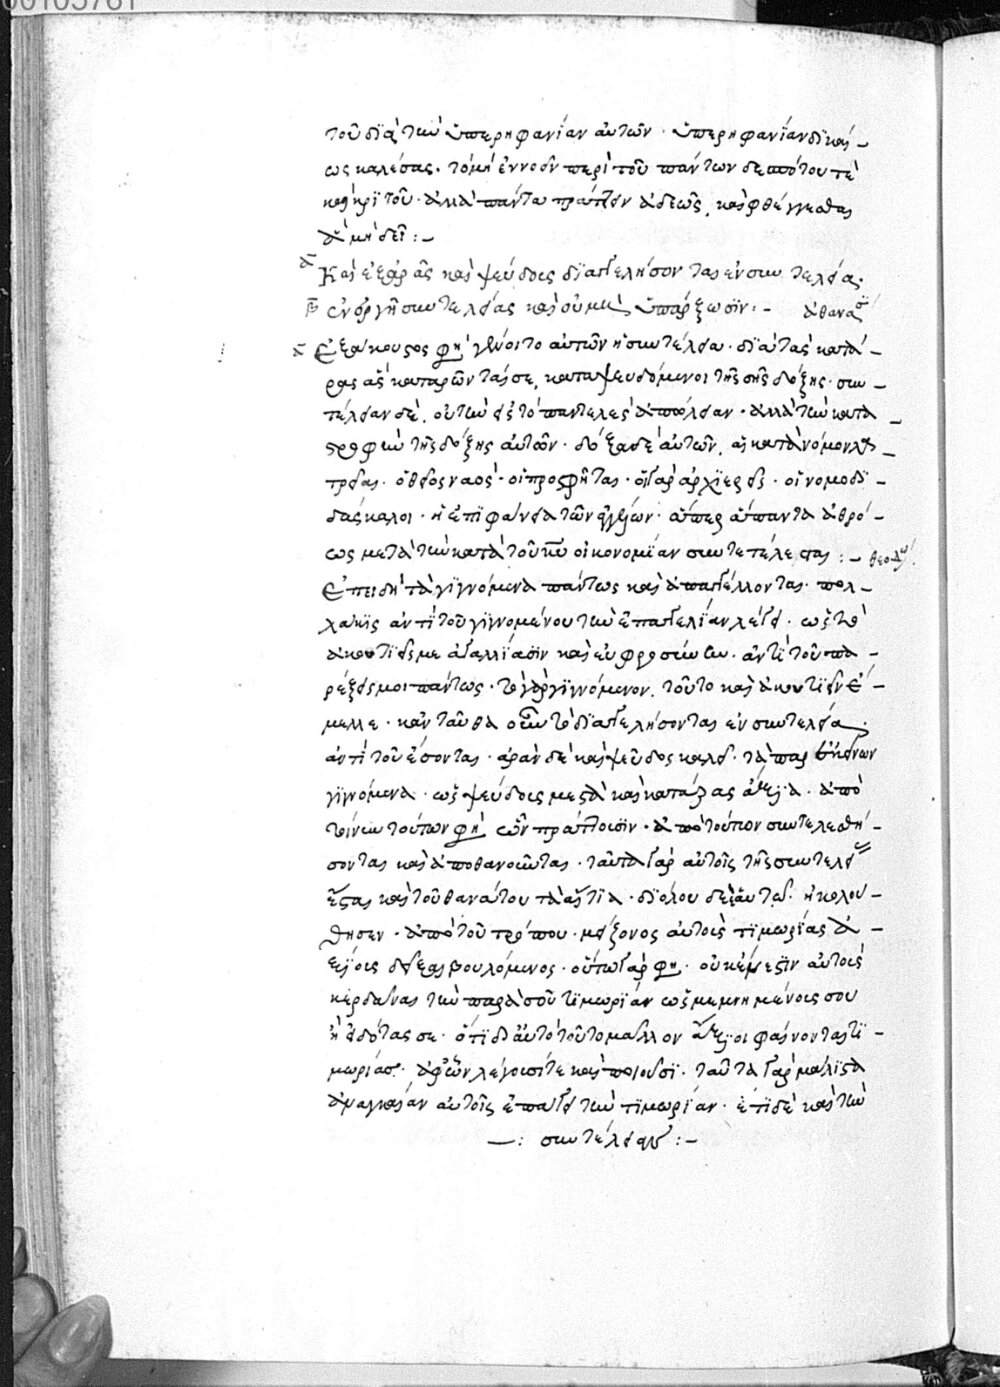 00105761
τοῦ διὰ τὴν ὑπερηφανίαν αὐτῶν · ὑπερηφανίαν δικαί-
ως καλέσας · τὸ μὴ ἐννοεῖν περὶ τοῦ πάντων δεσπότου τὲ
καὶ κριτοῦ · ἀλλὰ πάντα πράττειν ἀδεῶς, καὶ φθέγγεσθαι
ἃ μὴ δεῖ :-
α Καὶ ἐξ ἀρᾶς καὶ ψεύδους διαγγελήσονται ἐν συντελεία ·
β ἐν ὀργῆ συντελείας καὶ οὐ μὴ ὑπάρξωσιν :- ἀθανασ
α Ἐξάκουστος φη γένοιτο αὐτῶν ἡ συντέλεια · διὰ τὰς κατά-
ρας ἃς καταρῶνταί σε, καταψευδόμενοι τῆς σῆς δόξης · συν-
τέλειαν δὲ, οὐ τὴν εἰς τὸ παντελὲς ἀπώλειαν · ἀλλὰ τὴν κατα-
στροφὴν τῆς δόξης αὐτῶν · δόξα δὲ αὐτῶν, αἱ κατὰ νόμον λα-
τρεῖαι · ὁ θεῖος ναός · οἱ προφῆται · οἱ γὰρ ἀρχιερεῖς · οἱ νομοδι-
δάσκαλοι · ἡ ἐπιφάνεια τῶν ἀγγέλων · αἵπερ ἅπαντα ἀθρό-
ως μετὰ τὴν κατὰ τοῦ κυ οἰκονομίαν συντετέλεσται :- θεοδω
Ἐπειδὴ τὰ γιγνόμενα πάντως καὶ ἀπαγγέλλονται · πολ-
λάκις ἀντὶ τοῦ γιγνομένου τὴν ἐπαγγελίαν λέγει · ὡς τὸ
ἀκουτιεῖς με ἀγαλλίασιν καὶ εὐφροσύνην · ἀντὶ τοῦ πα-
ρέξεις μοι πάντως · τὸ γὰρ γιγνόμενον, τοῦτο καὶ ἀκουτίζειν ἔ-
μελλε · κἀνταῦθα οὖν τὸ διαγγελήσονται ἐν συντελεία,
ἀντὶ τοῦ ἔσονται · ἀρὰν δὲ καὶ ψεῦδος καλεῖ · τὰ παρ ἐκείνων
γιγνόμενα · ὡς ψεύδους μεστὰ καὶ κατάρας ἄξια · ἀπὸ
τοίνυν τούτων φη ὧν πράττουσιν · ἀπὸ τούτων συντελεσθή-
σονται καὶ ἀποθανοῦνται · ταῦτα γὰρ αὐτοῖς τῆς συντελεί
ἔσται καὶ τοῦ θανάτου τὰ αἴτια · δι ὅλου δὲ ἑαυτῶ ἠκολού-
θησεν · ἀπὸ τοῦ τρόπου · μείζονος αὐτοὺς τιμωρίας ἀ-
ξίους δεῖξαι βουλόμενος · οὕτω γὰρ φη · οὐκ ἔνεστιν αὐτοὺς
κερδᾶναι τὴν παρὰ σοῦ τιμωρίαν ὡς μεμνημένοις σου
ἢ εἰδότας σε · ὅτι δι αὐτὸ τοῦτο μᾶλλον ἄξιοι φαίνονται τι-
μωρίας · ἀφ ὧν λέγουσί τε καὶ ποιοῦσι · ταῦτα γὰρ μάλιστα
ἀναγκαίαν αὐτοῖς ἐπάγει τὴν τιμωρίαν · ἔτι δὲ καὶ τὴν
—: συντέλειαν :-